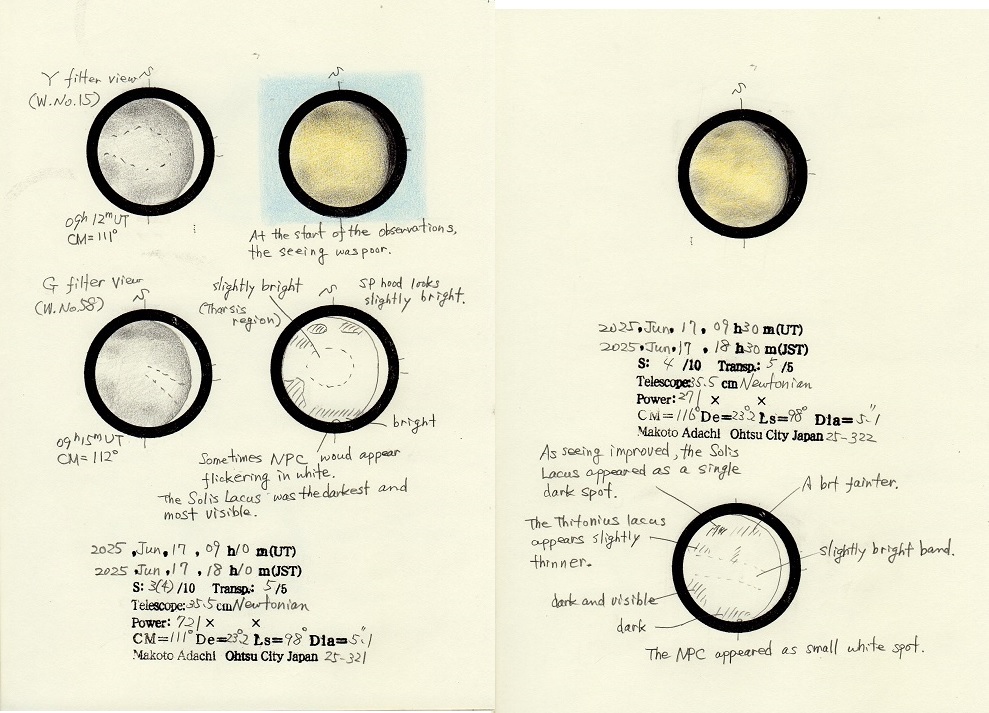 Y filter view
(W.No.15)
S
09h 12m UT
CM=111°
S
At the start of the observations,
the seeing was poor.
G filter view
(W.No.58)
S
09h 15m UT
CM=112°
slightly bright
(Tharsis
region)
S
SP hood looks
slightly bright.
bright
Sometimes NPC woud appear
flickering in white.
The Solis Lacus was the darkest and
most visible.
2025.Jun.17.09 h10 m(UT)
2025.Jun.17.18 h10 m(JST)
S: 3(4)/10 Transp.: 5/5
Telescope:35.5 cm Newtonian
Power: 721× ×
CM=111° De=23°.2 Ls=98° Dia=5".1
Makoto Adachi Ohtsu City Japan 25-321
S
2025.Jun.17.09 h30 m(UT)
2025.Jun.17.18 h30 m(JST)
S: 4/10 Transp.: 5/5
Telescope:35.5 cm Newtonian
Power: 271 × ×
CM=116° De=23°.2 Ls=98° Dia=5".1
Makoto Adachi Ohtsu City Japan 25-322
As seeing improved, the Solis
Lacus appeared as a single
dark spot.
A bit fainter.
The Thitonius lacus
appears slightly
thinner.
slightly bright band.
dark and visible
dark
The NPC appeared as small white spot.